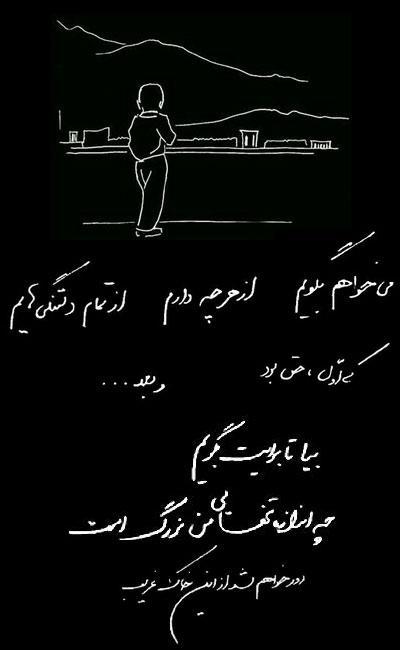 می‌خواهم بگویم از هر چه دارم از تمام دلتنگی‌هایم
اوّل ، حق بود و بعد ...
بیا تا برایت بگویم
چه اندازه تنهایی من بزرگ است
دور خواهم شد از این خاک غریب